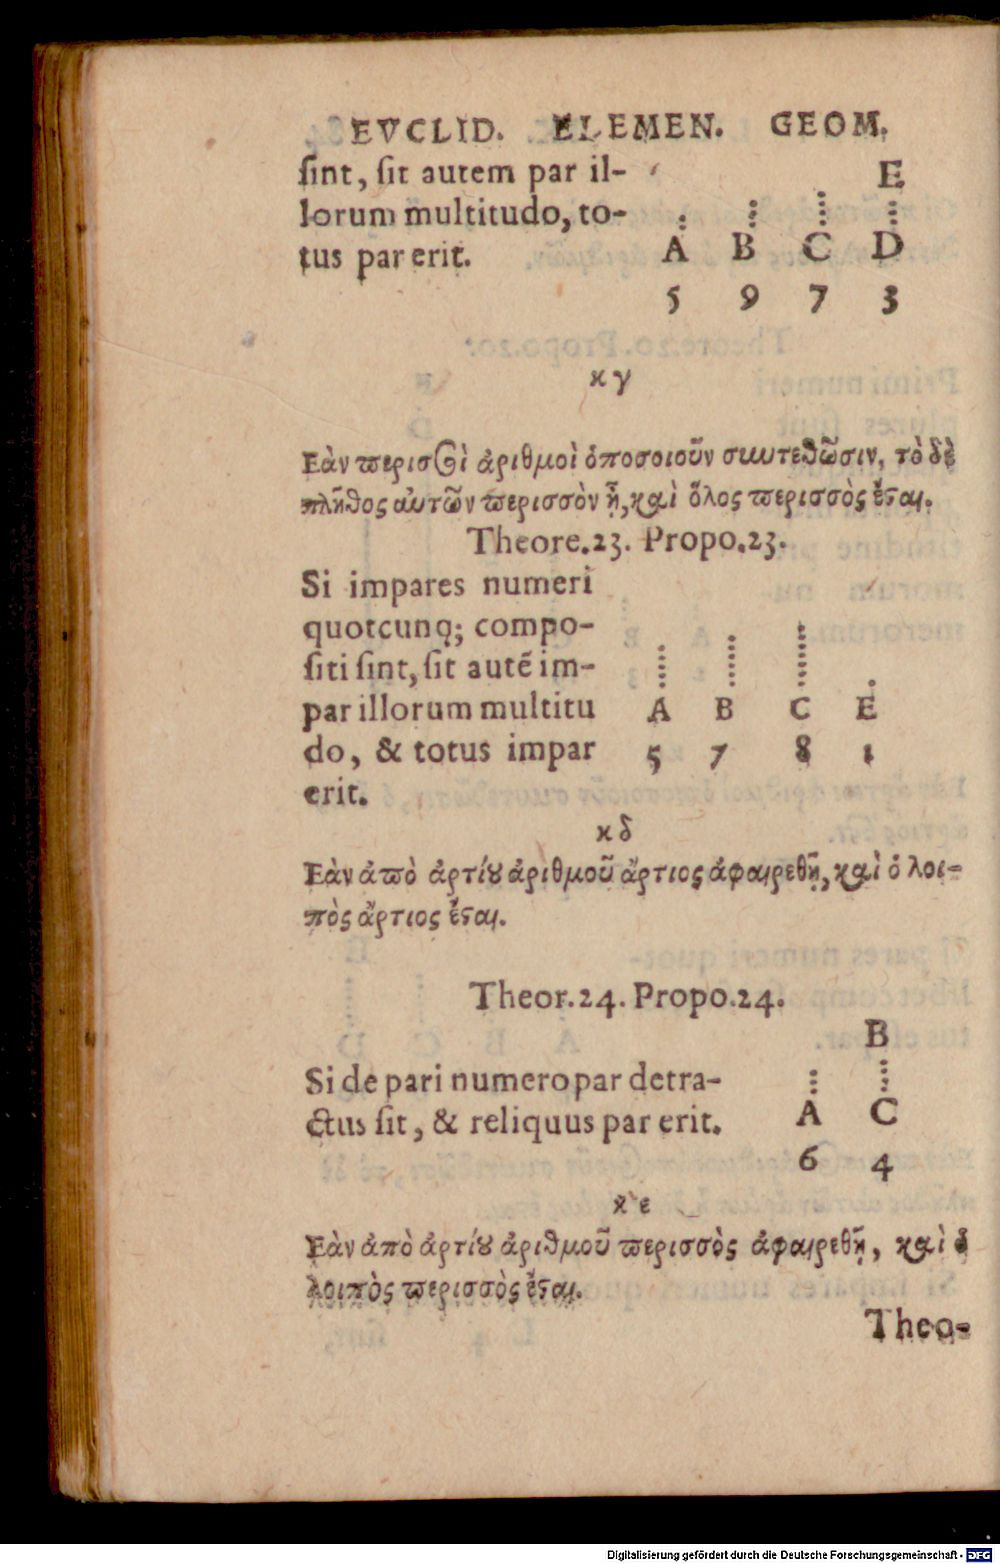 EVCLID. ELEMEN. GEOM.
sint, sit autem par il-
lorum multitudo, to-
tus par erit.
E
A B C D
5 9 7 3
κγ
Εὰν περισσοὶ ἀριθμοὶ ὁποσοιοῦν συντεθῶσιν, τὸ δὲ
πλῆθος αὐτῶν περισσὸν ᾖ, καὶ ὅλος περισσὸς ἔσται.
Theore.23. Propo.23.
Si impares numeri
quotcunq; compo-
siti sint, sit autẽ im-
par illorum multitu
do, & totus impar
erit.
A B C E
5 7 8 1
κδ
Εὰν ἀπὸ ἀρτίου ἀριθμοῦ ἄρτιος ἀφαιρεθῇ, καὶ ὁ λοι-
πὸς ἄρτιος ἔσται.
Theor.24. Propo.24.
Si de pari numero par detra-
ctus sit, & reliquus par erit.
B
A C
6 4
κε
Εὰν ἀπὸ ἀρτίου ἀριθμοῦ περισσὸς ἀφαιρεθῇ, καὶ ὁ
λοιπὸς περισσὸς ἔσται.
Theo-
Digitalisierung gefördert durch die Deutsche Forschungsgemeinschaft - DFG